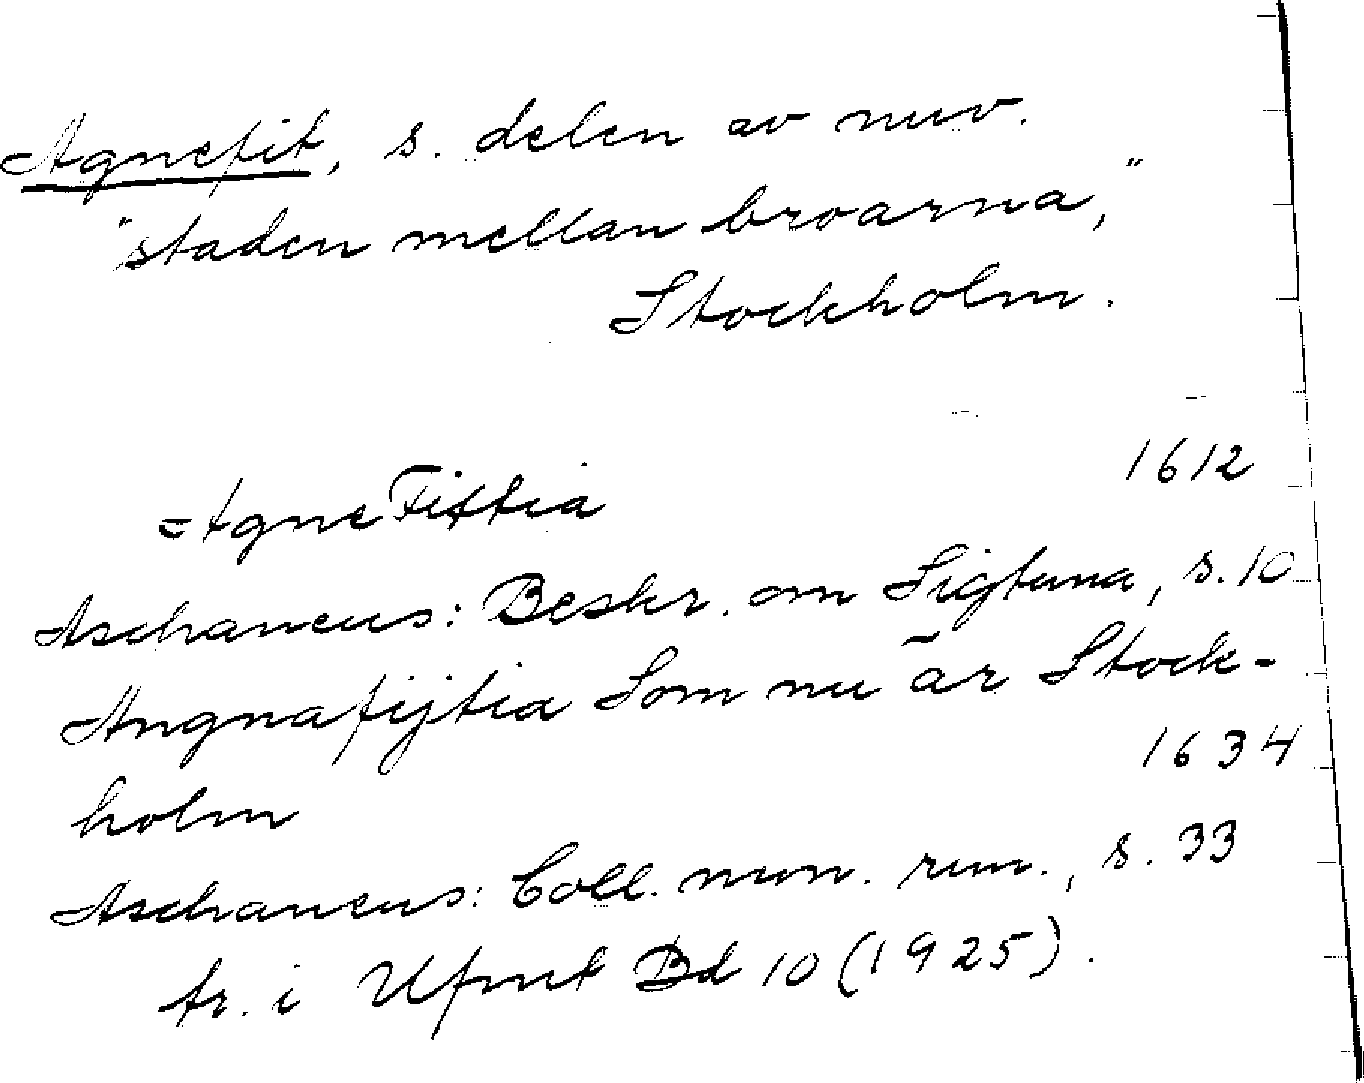 Agnefit, s. delen av nuv.
"staden mellan broarna,"
Stockholm.
1612
AgneFittia
Aschaneus: Beskr. om Sigtuna, s. 10
Angnafijtia Som nu är Stock-
1634
holm
Aschaneus: Coll. mon. run., s. 33
tr. i Ufmt Bd 10 (1925).